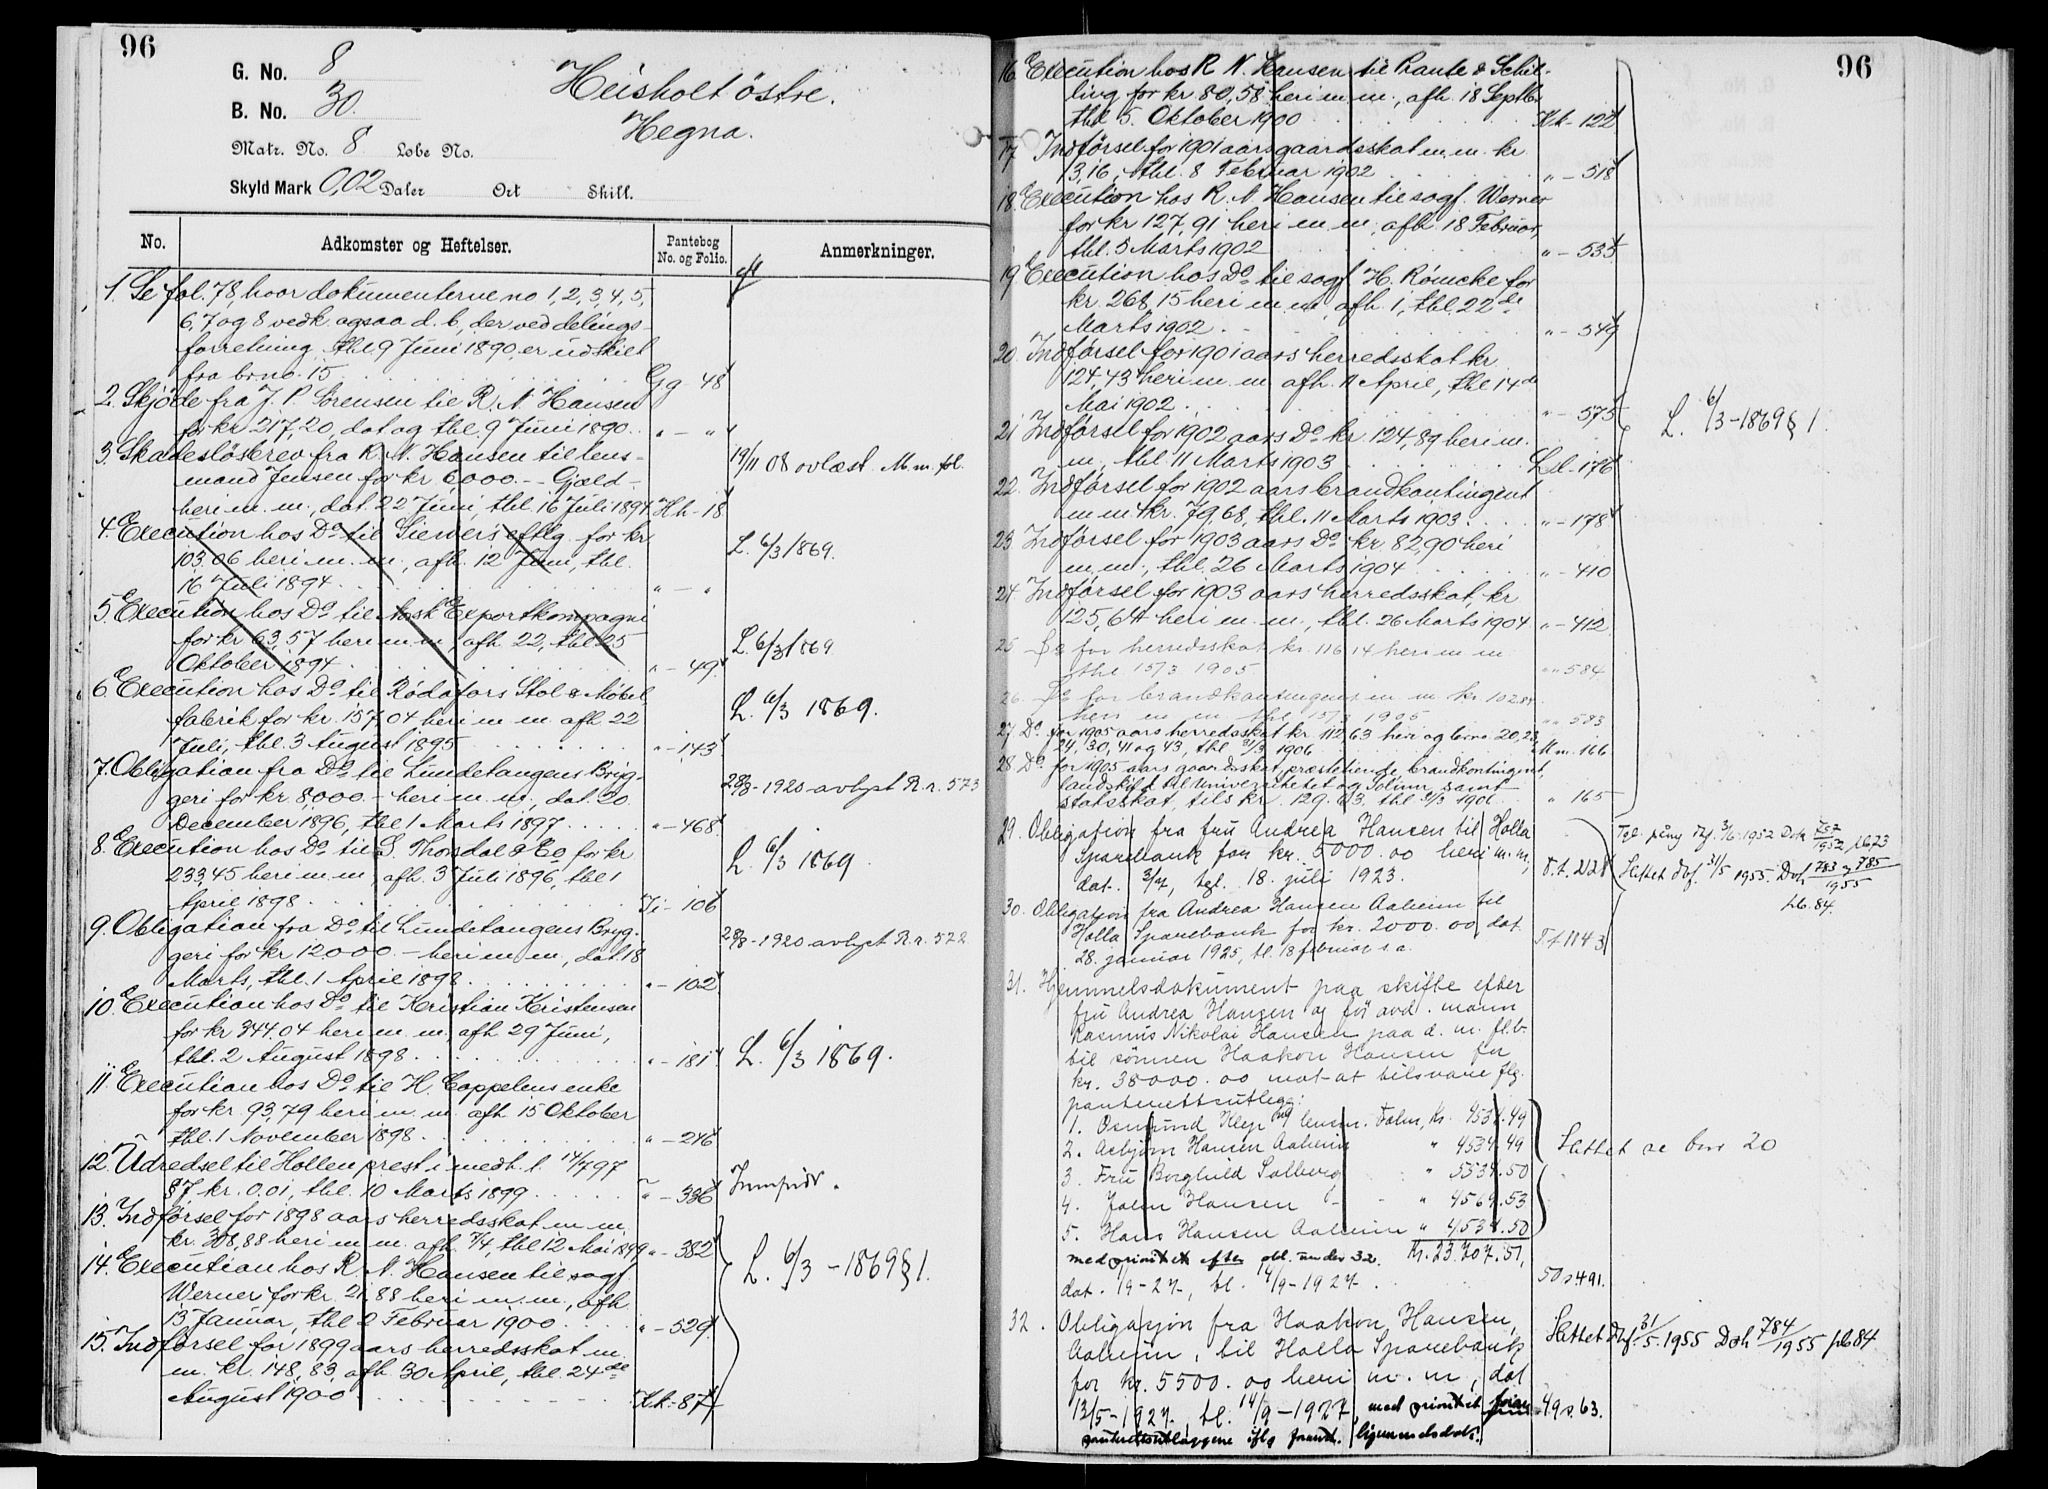 96
G. No. 8
B. No. 30.
Matr. No. 8 Løbe No.
Skyld Mark 0,02 Daler Ort Skill.
Heisholt östre.
Hegna.
No. Adkomster og Heftelser. Pantebog No. og Folio. Anmerkninger.
1. Se fol. 78, hvor dokumenterne no 1, 2, 3, 4, 5,
6, 7 og 8 vedk. ogsaa d. b., der ved delings-
forretning thl. 9 Juni 1890 er udskilt
fra br.no. 15 Gg - 48
2. Skjöde fra J. P. Sörensen til R. N. Hansen
for kr. 217,20, dat og thl. 9 Juni 1890 " - "
3. Skadeslösbrev fra R. N. Hansen til lens- 19/11 08 avlæst. M.m. fol.
mand Jensen for kr 6,000.- - Gjæld -
heri m. m., dat. 22 Juni, thl. 16 Juli 1894 Hh - 18
4. Execution hos Do til Siewers eftlg. for kr L. 6/3 1869.
103,06 heri m. m., afh. 12 Juni, thl.
16 Juli 1894 " - "
5. Execution hos Do til Norsk Exportkompagni
for kr 63,57 heri m. m., afh. 22, thl. 25 L. 6/3 1869
Oktober 1894 " - 49
6. Execution hos Do til Rödafors Stol & Möbel
fabrik for kr. 157,04 heri m. m. afh. 22 L. 6/3 1869.
Juli, thl. 3 August 1895 " - 143
7. Obligation fra Do til Lundetangens Bryg- 28/8 - 1920 avlyst R.r. 573
geri for kr. 8,000.- heri m. m., dat. 20
December 1896, thl. 1 Marts 1897 " - 468
8. Execution hos Do til S. Thorsdal & Co for kr L. 6/3 1869.
233,45 heri m. m., afh. 3 Juli 1896, thl. 1
April 1898 Ii - 106
9. Obligation fra Do til Lundetangens Bryg- 28/8 - 1920 avlyst R.r. 572
geri for kr 12000.- heri m. m., dat. 18
Marts, thl. 1 April 1898 " - 102
10. Execution hos Do til Kristian Kristensen
for kr 344.04 heri m. m., afh. 29 Juni,
thl. 2 August 1898 " - 181 L. 6/3 1869.
11. Execution hos Do til H. Cappelens enke
for kr. 93,79 heri m. m. afh. 15 Oktober
thl. 1 November 1898 " - 246
12. Udredsel til Hollen prest i medh. l. 14/7 97
§ 7 kr. 0.01, thl. 10 Marts 1899 " - 336
13. Indförsel for 1898 aars herredsskat m. m.
kr. 308,88 heri m. m. afh. 7/4, thl. 12 Mai 1899 " - 382
14. Execution hos R. N. Hansen til sagf. L. 6/3 - 1869 § 1.
Werner for kr. 21.88 heri m. m., afh.
13 Januar, thl. 2 Februar 1900 " - 529
15. Indförsel for 1899 aars herredsskat m.
m. kr. 148,83, afh. 30 April, thl. 24de
August 1900 Kk - 87
96
16. Execution hos R. N. Hansen til Rante & Schil-
ling for kr 80,58 heri m. m., afh. 18 Septbr.
thl. 5. Oktober 1900 Kk - 122
17 Indförsel for 1901 aars gaardsskat m. m. kr
13,16, thl. 8 Februar 1902 " - 518
18. Execution hos R. N. Hansen til sagf. Werner
for kr 127,91 heri m. m., afh 18 Februar,
thl. 5 Marts 1902 " - 535
19 Execution hos Do til sagf. H. Römcke for
kr. 268,15 heri m. m., afh. 1, thl. 22de
Marts 1902 " - 549
20. Indförsel for 1901 aars herredsskat kr.
124,43 heri m. m. afh. 11 April, thl. 14de
Mai 1902 " - 575 L. 6/3 - 1869 § 1.
21 Indförsel for 1902 aars Do kr. 124,89 heri m.
m., thl. 11 Marts 1903 Ll - 176
22. Indförsel for 1902 aars brandkontingent
m. m. kr. 79,68, thl. 11 Marts 1903 " - 178
23 Indförsel for 1903 aars Do kr 82,90 heri
m. m., thl. 26 Marts 1904 " - 410
24 Indförsel for 1903 aars herredsskat, kr
125,64 heri m. m., thl. 26 Marts 1904 " - 412
25 Do for herredsskat kr. 116 14 heri m m
thl 15/3 1905 " " 584
26. Do for brandkontingens m. m. kr. 102.84
heri m m thl 15/3 1905 " " 583
27 Do for 1905 aars herredsskat kr. 112,63 heri og brno 20, 23,
24, 30, 41 og 43, thl. 31/3 1906 Mm. 166
28 Do for 1905 aars gaardsskat, præstetiende, brandkontingent,
landskyld til Universitetet og Solum, samt
statsskat, tils kr. 129.63. thl. 31/3 1906 " 165
29. Obligation fra fru Andrea Hansen til Holla
Sparebank for kr. 5000.00 heri m. m,
dat. 3/7, tgl. 18. juli 1923. 2128 Slettet dbf. 31/5 1955. Dok 783 og 785/1955
Lb. 84.
30. Obligation fra Andrea Hansen Aaheim til
Holla Sparebank for kr. 2000.00 dat.
28. januar 1925, tl. 18 februar s. a. 1143
31. Hjemmelsdokument paa skifte efter
fru Andrea Hansen og før avd. mann
Rasmus Nikolai Hansen paa d. m. fl. b.
til sönnen Haakon Hansen for
kr. 38000.00 mot at tilsvare flg.
panterettsutlegg:
1. Osmund Klep Kr. 4534.49
2. Asbjørn Hansen Aaheim " 4534.49 Slettet se bnr 20
3. Fru Borghild Solberg " 5534.50
4. John Hansen - " 4569.53
5. Hans Hansen Aaheim " 4534.50
med prioritet efter obl. under 32. Kr. 23.707.51,
dat. 1/9 - 27, tl. 14/9 - 1927. 50 s 491.
32. Obligasjon fra Haakon Hansen, Slettet dbf. 31/5. 1955 Dok 784/1955 Lb 84
Aaheim, til Holla Sparebank
for kr. 5500.00 heri m. m, dat
12/5 - 1927, tl. 14/9 - 1927, med prioritet foran 49 s. 63.
panterettsutlæggene iflg foranst. hjemmelsdok.